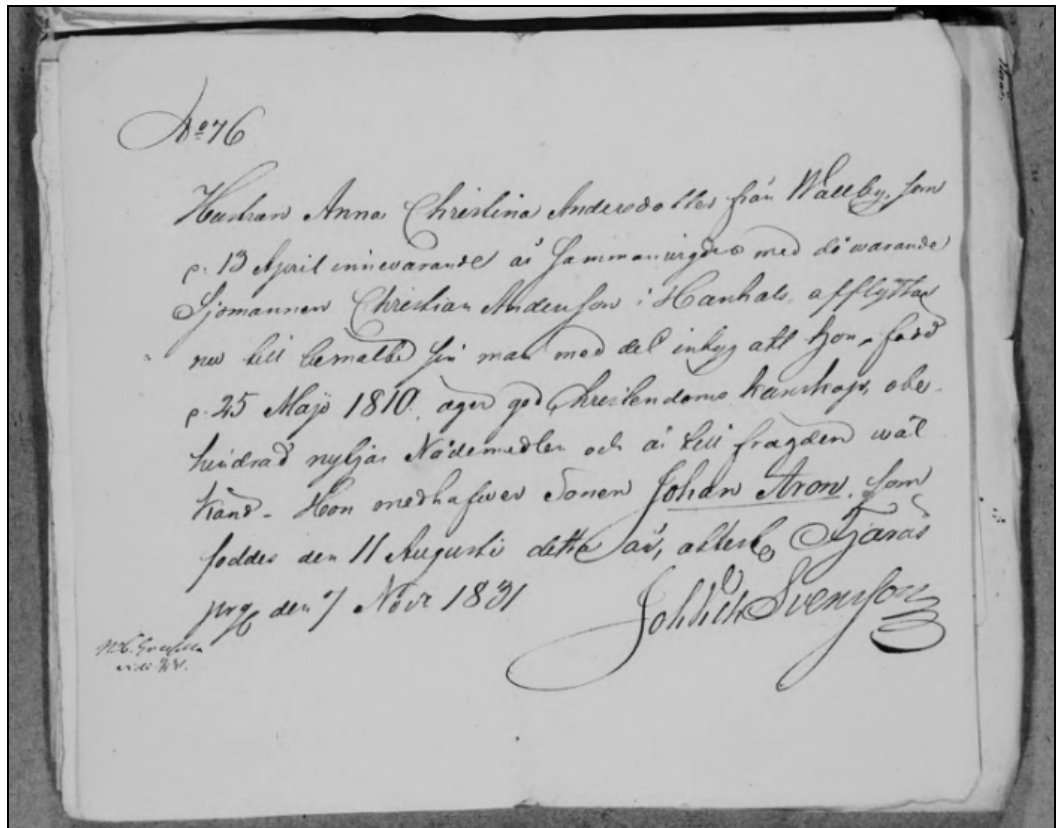 No 76
Hustrun Anna Christina Andersdotter från Wallby, som
d. 13 April innewarande år Sammanwigdes med då warande
Sjömannen Christian Anderson i Hanhals, afflyttar
nu till bemälte sin man med det intyg att hon, född
d. 25 Majo 1810, äger god Christendoms kunskap, obe-
hindrad nyttjar Nådemedlen och är till frägden wäl
känd. Hon medhafwer Sonen Johan Aron, som
föddes den 11 Augusti detta år, attest. Fjärås
prg den 7 Novr 1831
Joh Svenson